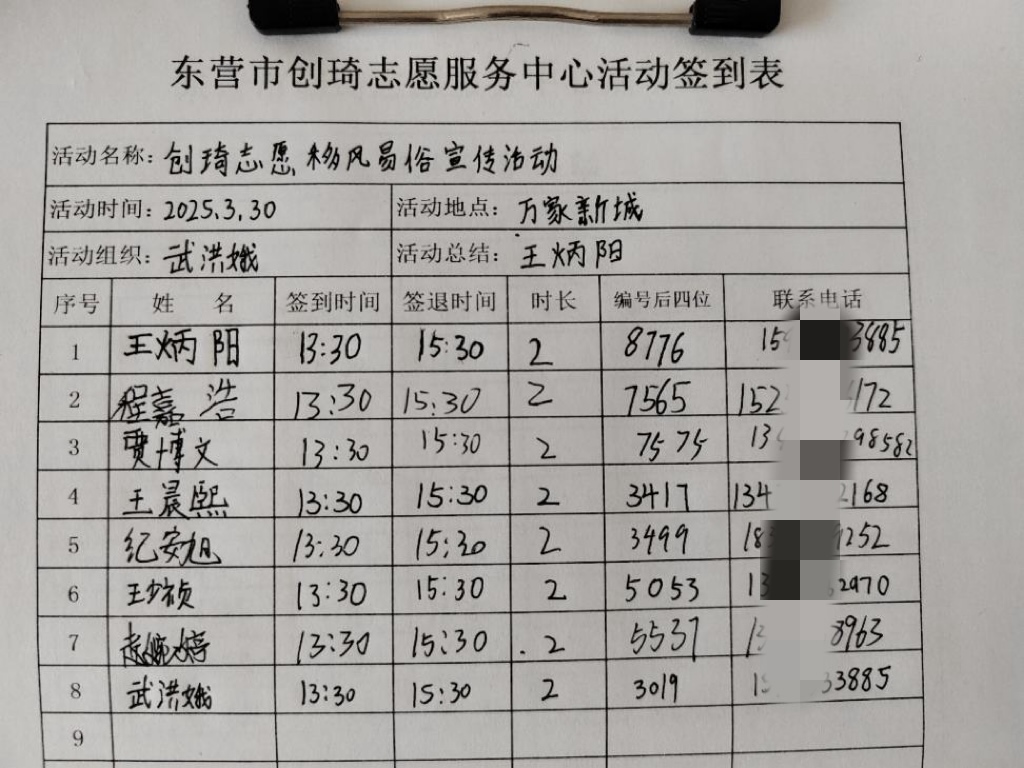 东营市创琦志愿服务中心活动签到表
活动名称：创琦志愿移风易俗宣传活动
活动时间：2025.3.30 活动地点：万家新城
活动组织：武洪娥 活动总结：王炳阳
序号 姓名 签到时间 签退时间 时长 编号后四位 联系电话
1 王炳阳 13:30 15:30 2 8776 15 3885
2 程嘉浩 13:30 15:30 2 7565 152 172
3 贾博文 13:30 15:30 2 7575 13 98582
4 王晨熙 13:30 15:30 2 3417 134 2168
5 纪安旭 13:30 15:30 2 3499 18 252
6 王少祯 13:30 15:30 2 5053 1 2970
7 13:30 15:30 2 5537 1 8963
8 武洪娥 13:30 15:30 2 3019 1 33885
9